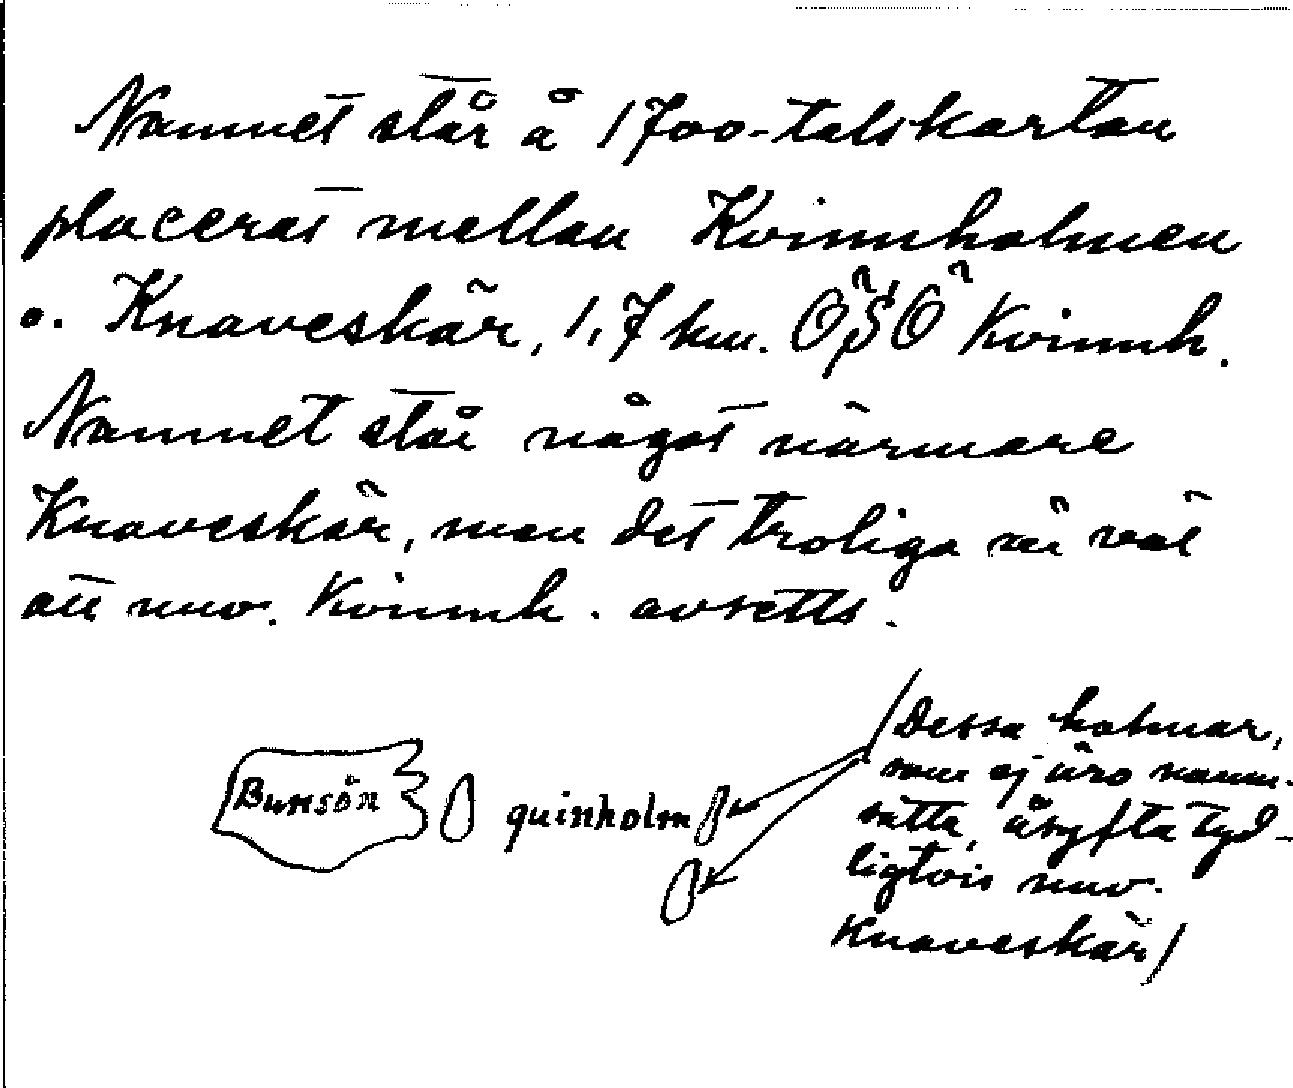 Namnet står å 1700-talskartan
placerat mellan Kvinnholmen
o. Knaveskär, 1,7 km. ÖSÖ Kvinnh.
Namnet står något närmare
Knaveskär, men det troliga är väl
att nuv. Kvinnh. avsetts.
Bunsön quinholm
(Dessa holmar,
som ej äro namn-
satta, åsyfta tyd-
ligtvis nuv.
Knaveskär)